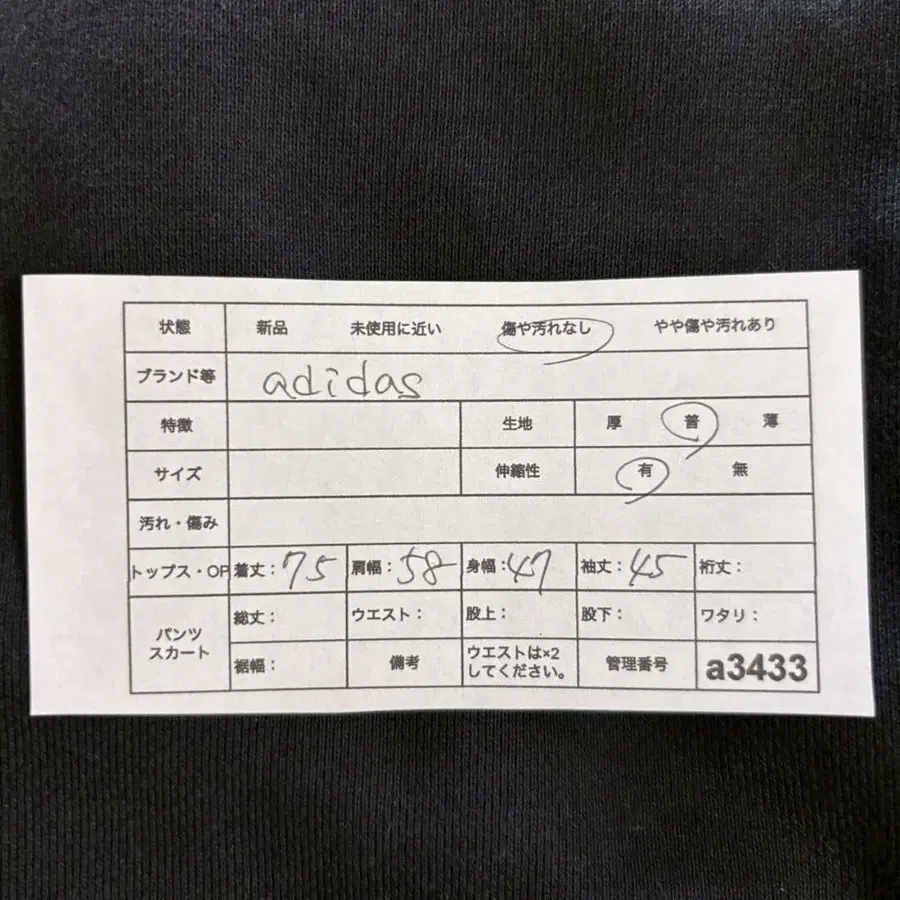 状態 新品 未使用に近い 傷や汚れなし やや傷や汚れあり
ブランド等 adidas
特徴 生地 厚 普 薄
サイズ 伸縮性 有 無
汚れ・傷み
トップス・OP 着丈：75 肩幅：58 身幅：47 袖丈：45 裄丈：
パンツ スカート 総丈： ウエスト： 股上： 股下： ワタリ：
裾幅： 備考 ウエストは×2 してください。 管理番号 a3433